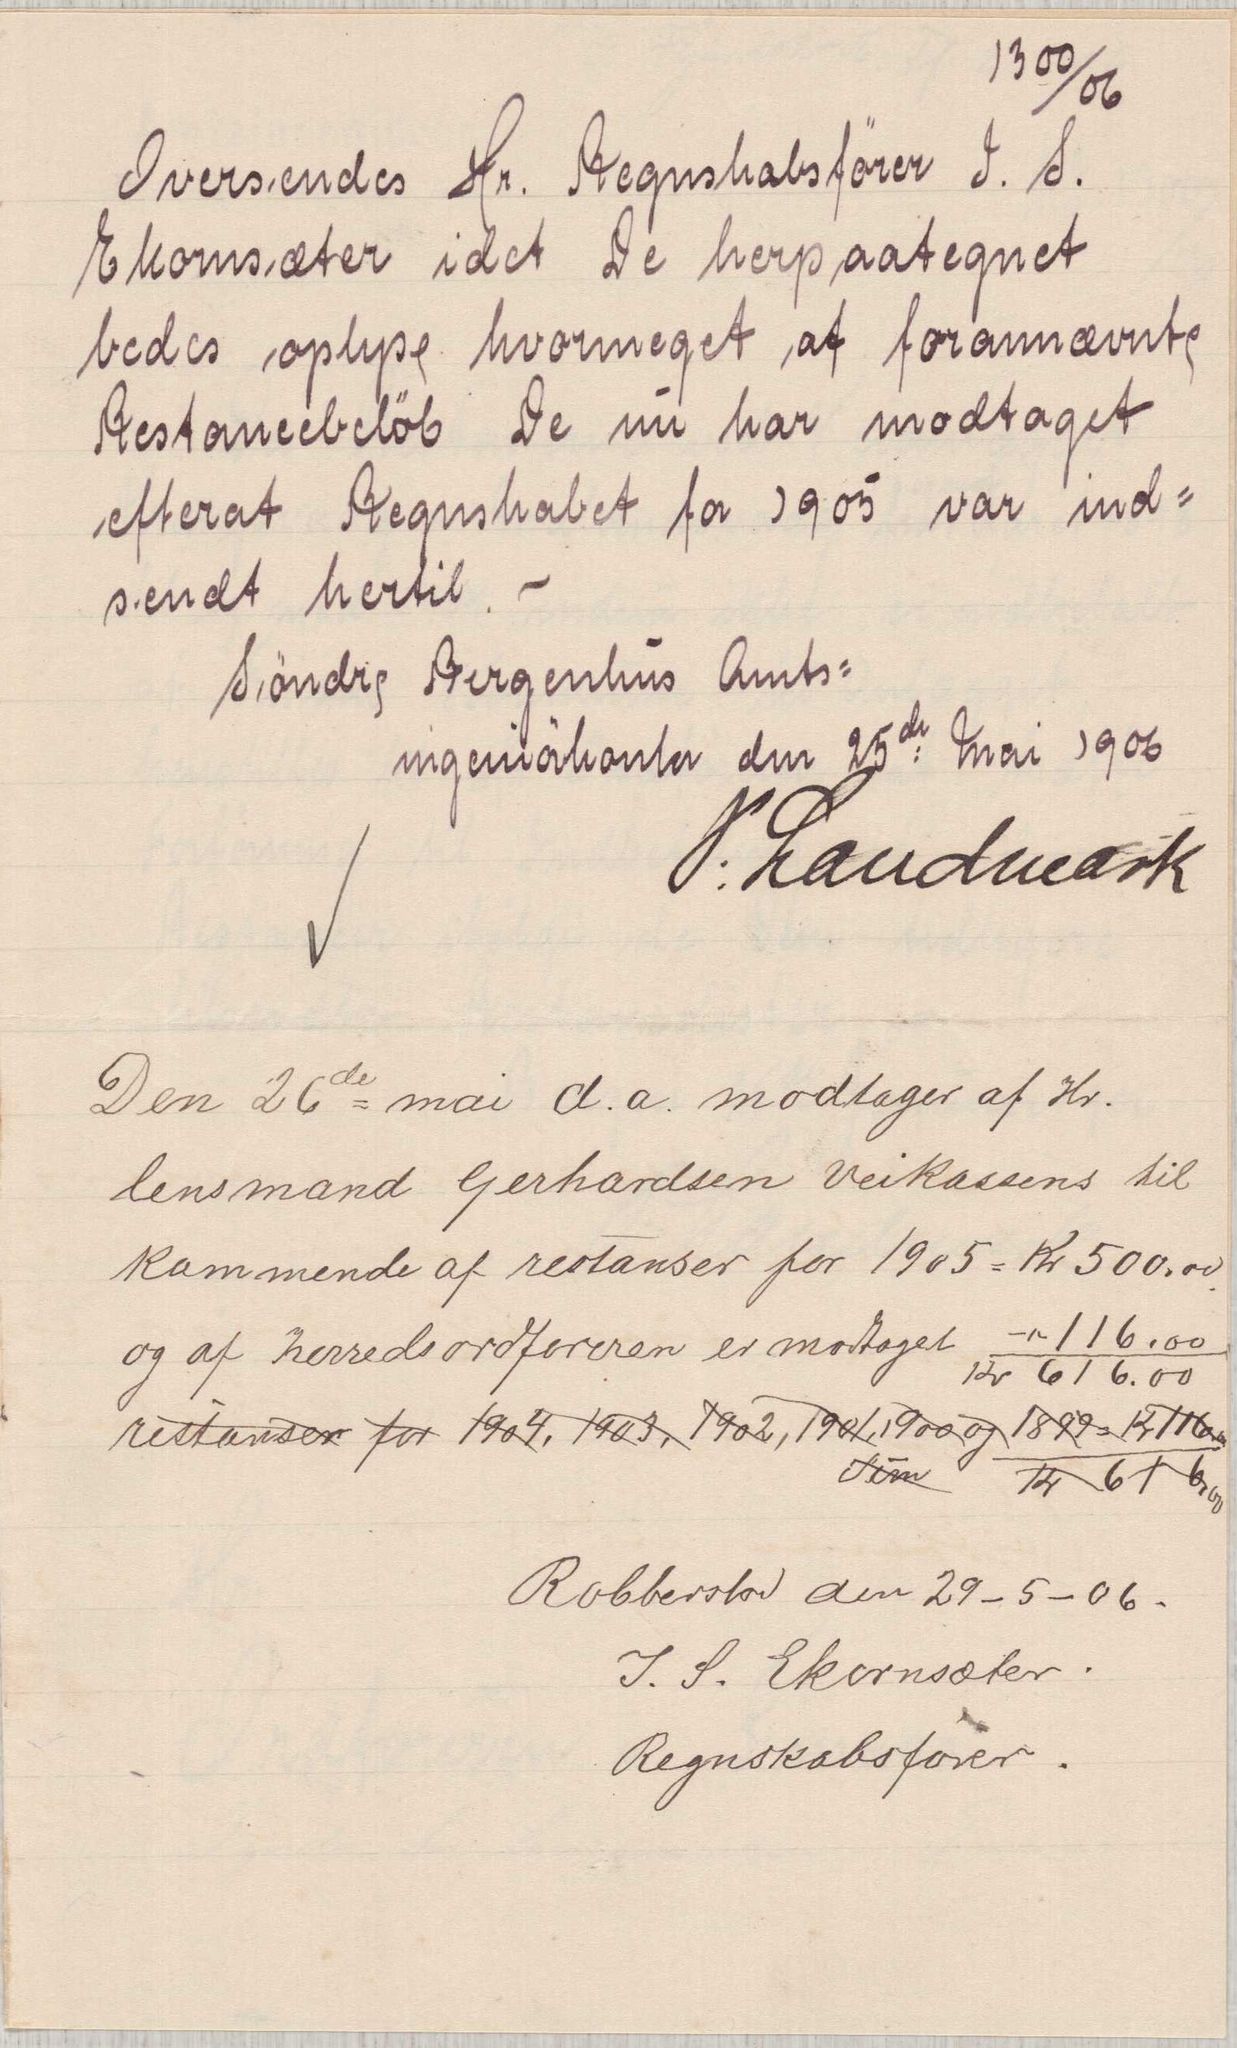 1300/06
Oversendes Hr. Regnskabsfører I. S.
Ekornsæter idet De herpaategnet
bedes oplyse hvormeget af forannævnte
Restancebeløb De nu har modtaget
efterat Regnskabet for 1905 var ind=
sendt hertil. -
Søndre Bergenhus Amts=
ingeniørkontor den 25de Mai 1906
N. Landmark
Den 26de mai d.a. modtager af Hr.
lensmand Gerhardsen Veikassens til
kommende af restanser for 1905 = Kr 500.00.
og af herredsordføreren er modtaget -"- 116.00
Kr 616.00
restanser for 1904, 1903, 1902, 1901, 1900 og 1899 = Kr 116.00
Sum Kr 616.00
den 29-5-06.
I. S. Ekornsæter.
Regnskabsfører.